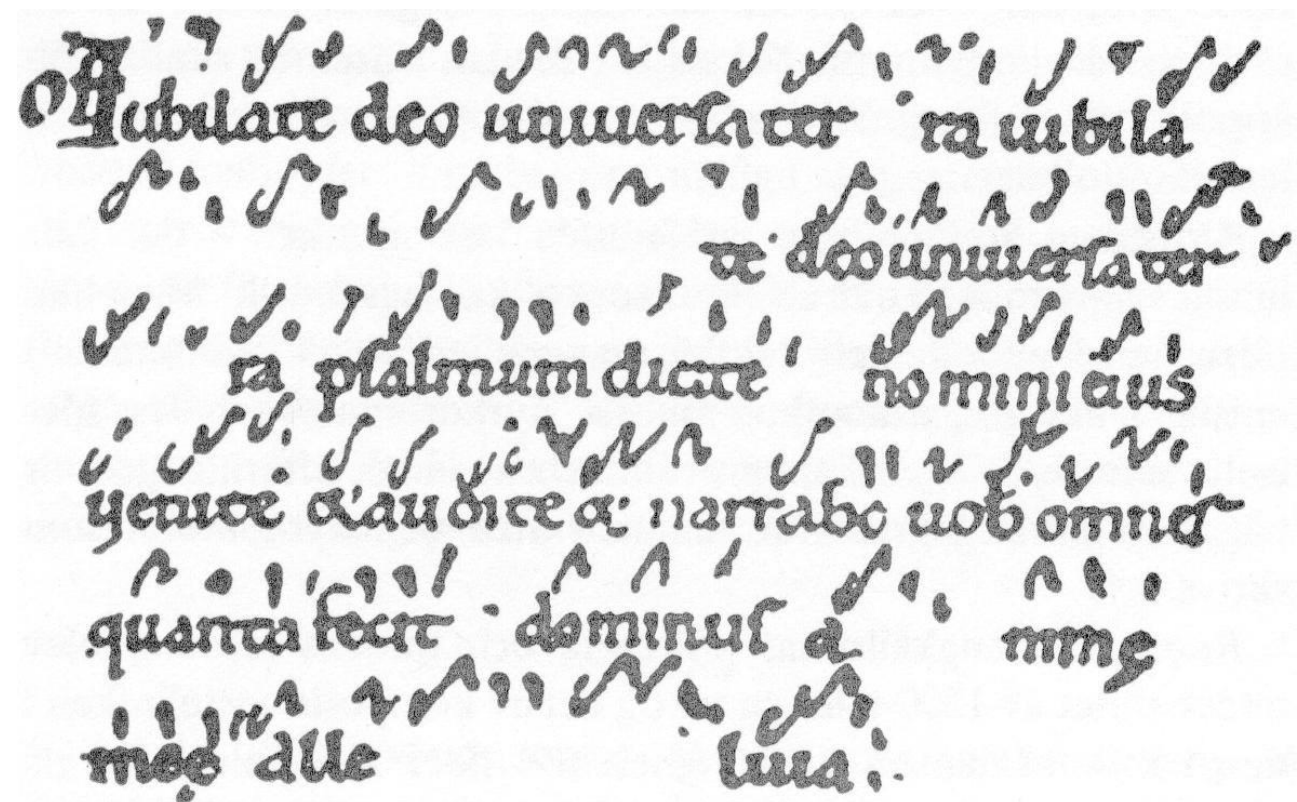 Of Iubilate deo uniuersa ter ra iubila
te deo uniuersa ter
ra psalmum dicite nomini eius
uenite & audite & narrabo uob omnes
quanta fecit dominus a nime
alle luia